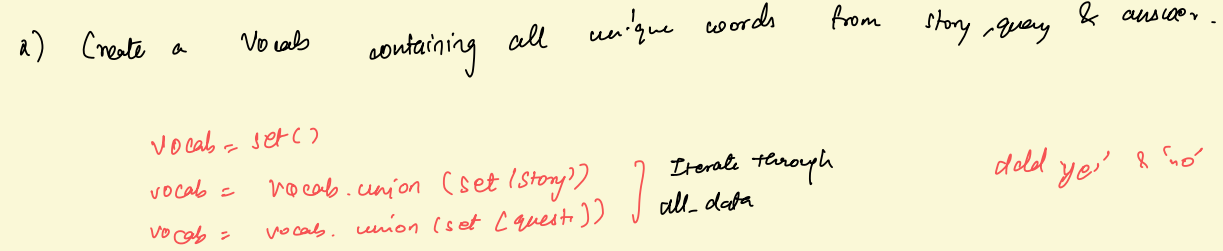 a) Create a Vocab containing all unique words from story, query & answer.
vocab = set()
vocab = vocab.union (set (story))
vocab = vocab. union (set (quest.))
Iterate through
all_data
add 'yes' & 'no'